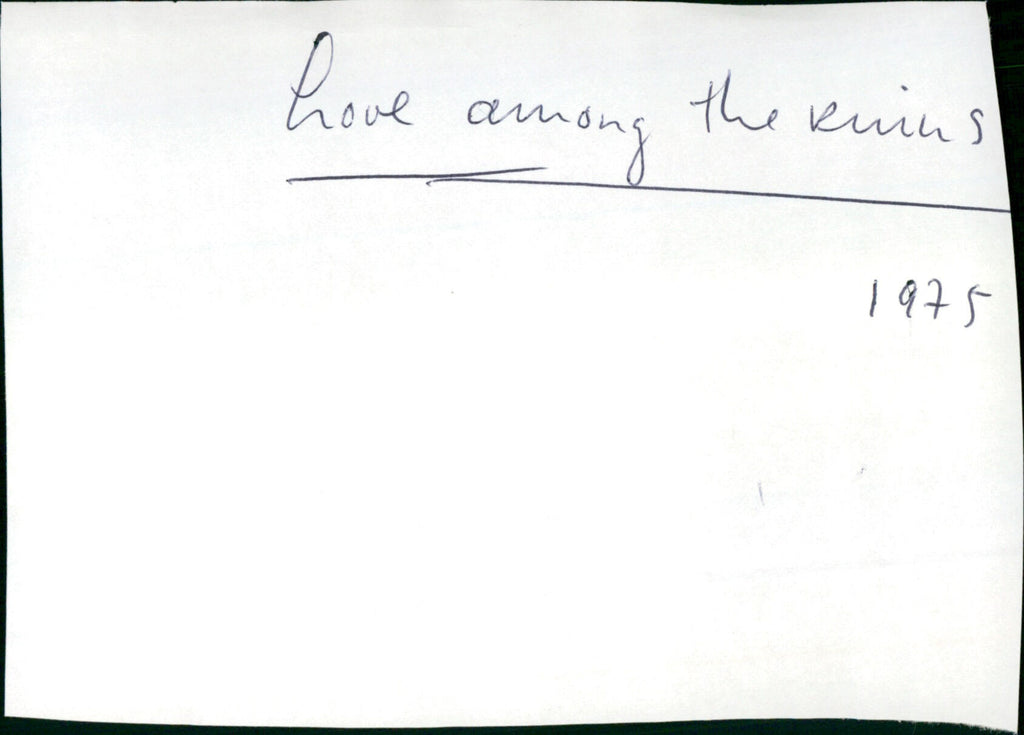 Love among the ruins
1975